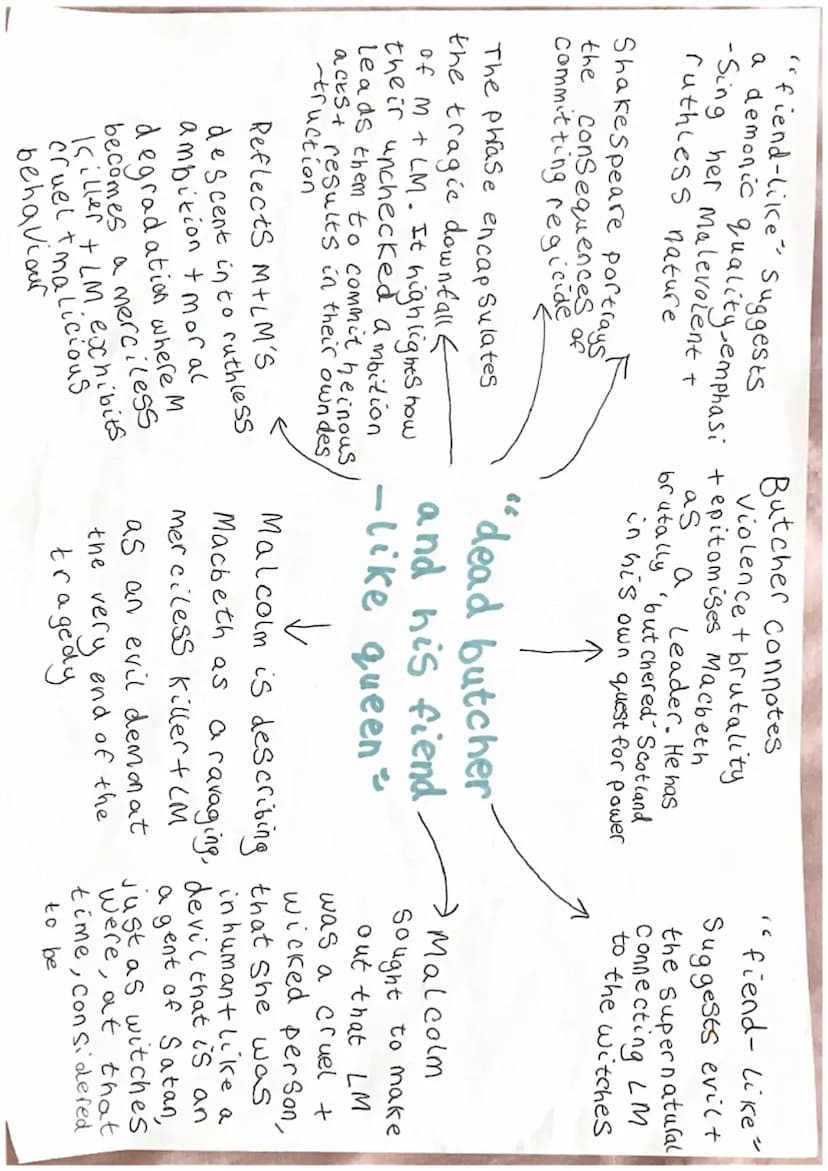 "fiend-like" suggests
a demonic quality, emphasi
-sing her malevolent +
ruthless nature
Butcher connotes
violence + brutality
+ epitomises Macbeth
as a leader. He has
brutally 'butchered' Scotland
in his own quest for power
"fiend-like"
suggests evil +
the supernatural
connecting LM
to the witches
Shakespeare portrays
the consequences of
committing regicide
The phrase encapsulates
the tragic downfall
of M + LM. It highlights how
their unchecked ambition
leads them to commit heinous
acts + results in their own des
-truction
"dead butcher
and his fiend
-like queen"
Malcolm
sought to make
out that LM
was a cruel +
wicked person,
that she was
inhuman like a
devil that is an
agent of Satan,
just as witches
were, at that
time, considered
to be
Reflects M+LM's
descent into ruthless
ambition + moral
degradation where M
becomes a merciless
killer + LM exhibits
cruel + malicious
behaviour
Malcolm is describing
Macbeth as a ravaging,
merciless killer + LM
as an evil demon at
the very end of the
tragedy